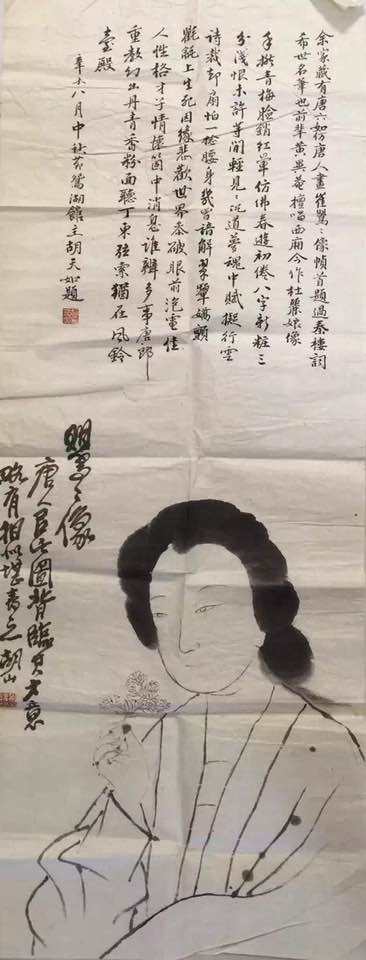 余家藏有唐六如仿唐人畫崔鶯々像幀首題過秦樓詞
希世名筆也前輩黃異菴擅唱西廂今作杜麗娘像
手撚青梅臉銷紅暈仿佛春遊初倦八字新粧三
分淺恨未許等閒輕見々說道夢魂中賦擬行雲
詩裁却扇怕一捻腰身幾曾諳解翠顰嬌顫
氍毹上生死因緣悲歡世界參破眼前泡電佳
人性格才子情懷箇中消息誰辨多事唐郎
重教幻出丹青香粉面聽丁東弦索猶在風鈴
臺殿
八月中秋鴛湖館主胡天如題
鶯々像
唐人圖背臨其大意
略有相似